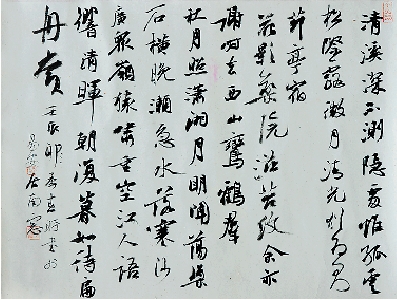 清溪深不測隱處惟孤雲
松際露微月清光猶為君
茆亭宿
花影藥院滋苔紋余亦
謝時去西山鸞鶴群
秋月照瀟湘月明聞蕩槳
石橫晚瀨急水落寒沙
廣眾嶺猿嘯重空江人語
響清暉朝復暮如待扁
舟賞 壬辰 春 時書於
居南窗